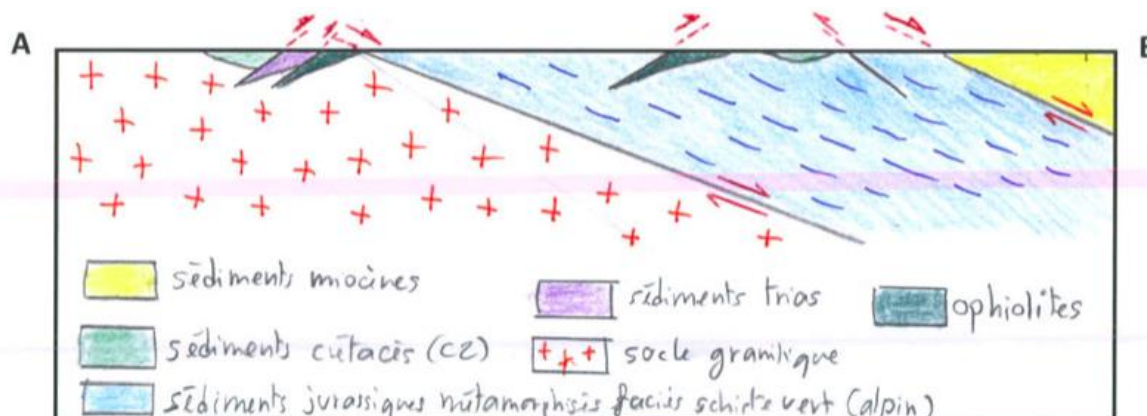 A E
sédiments miocènes
sédiments trias
ophiolites
sédiments crétacés (C2)
socle granitique
sédiments jurassiques métamorphisés faciès schiste vert (alpin)